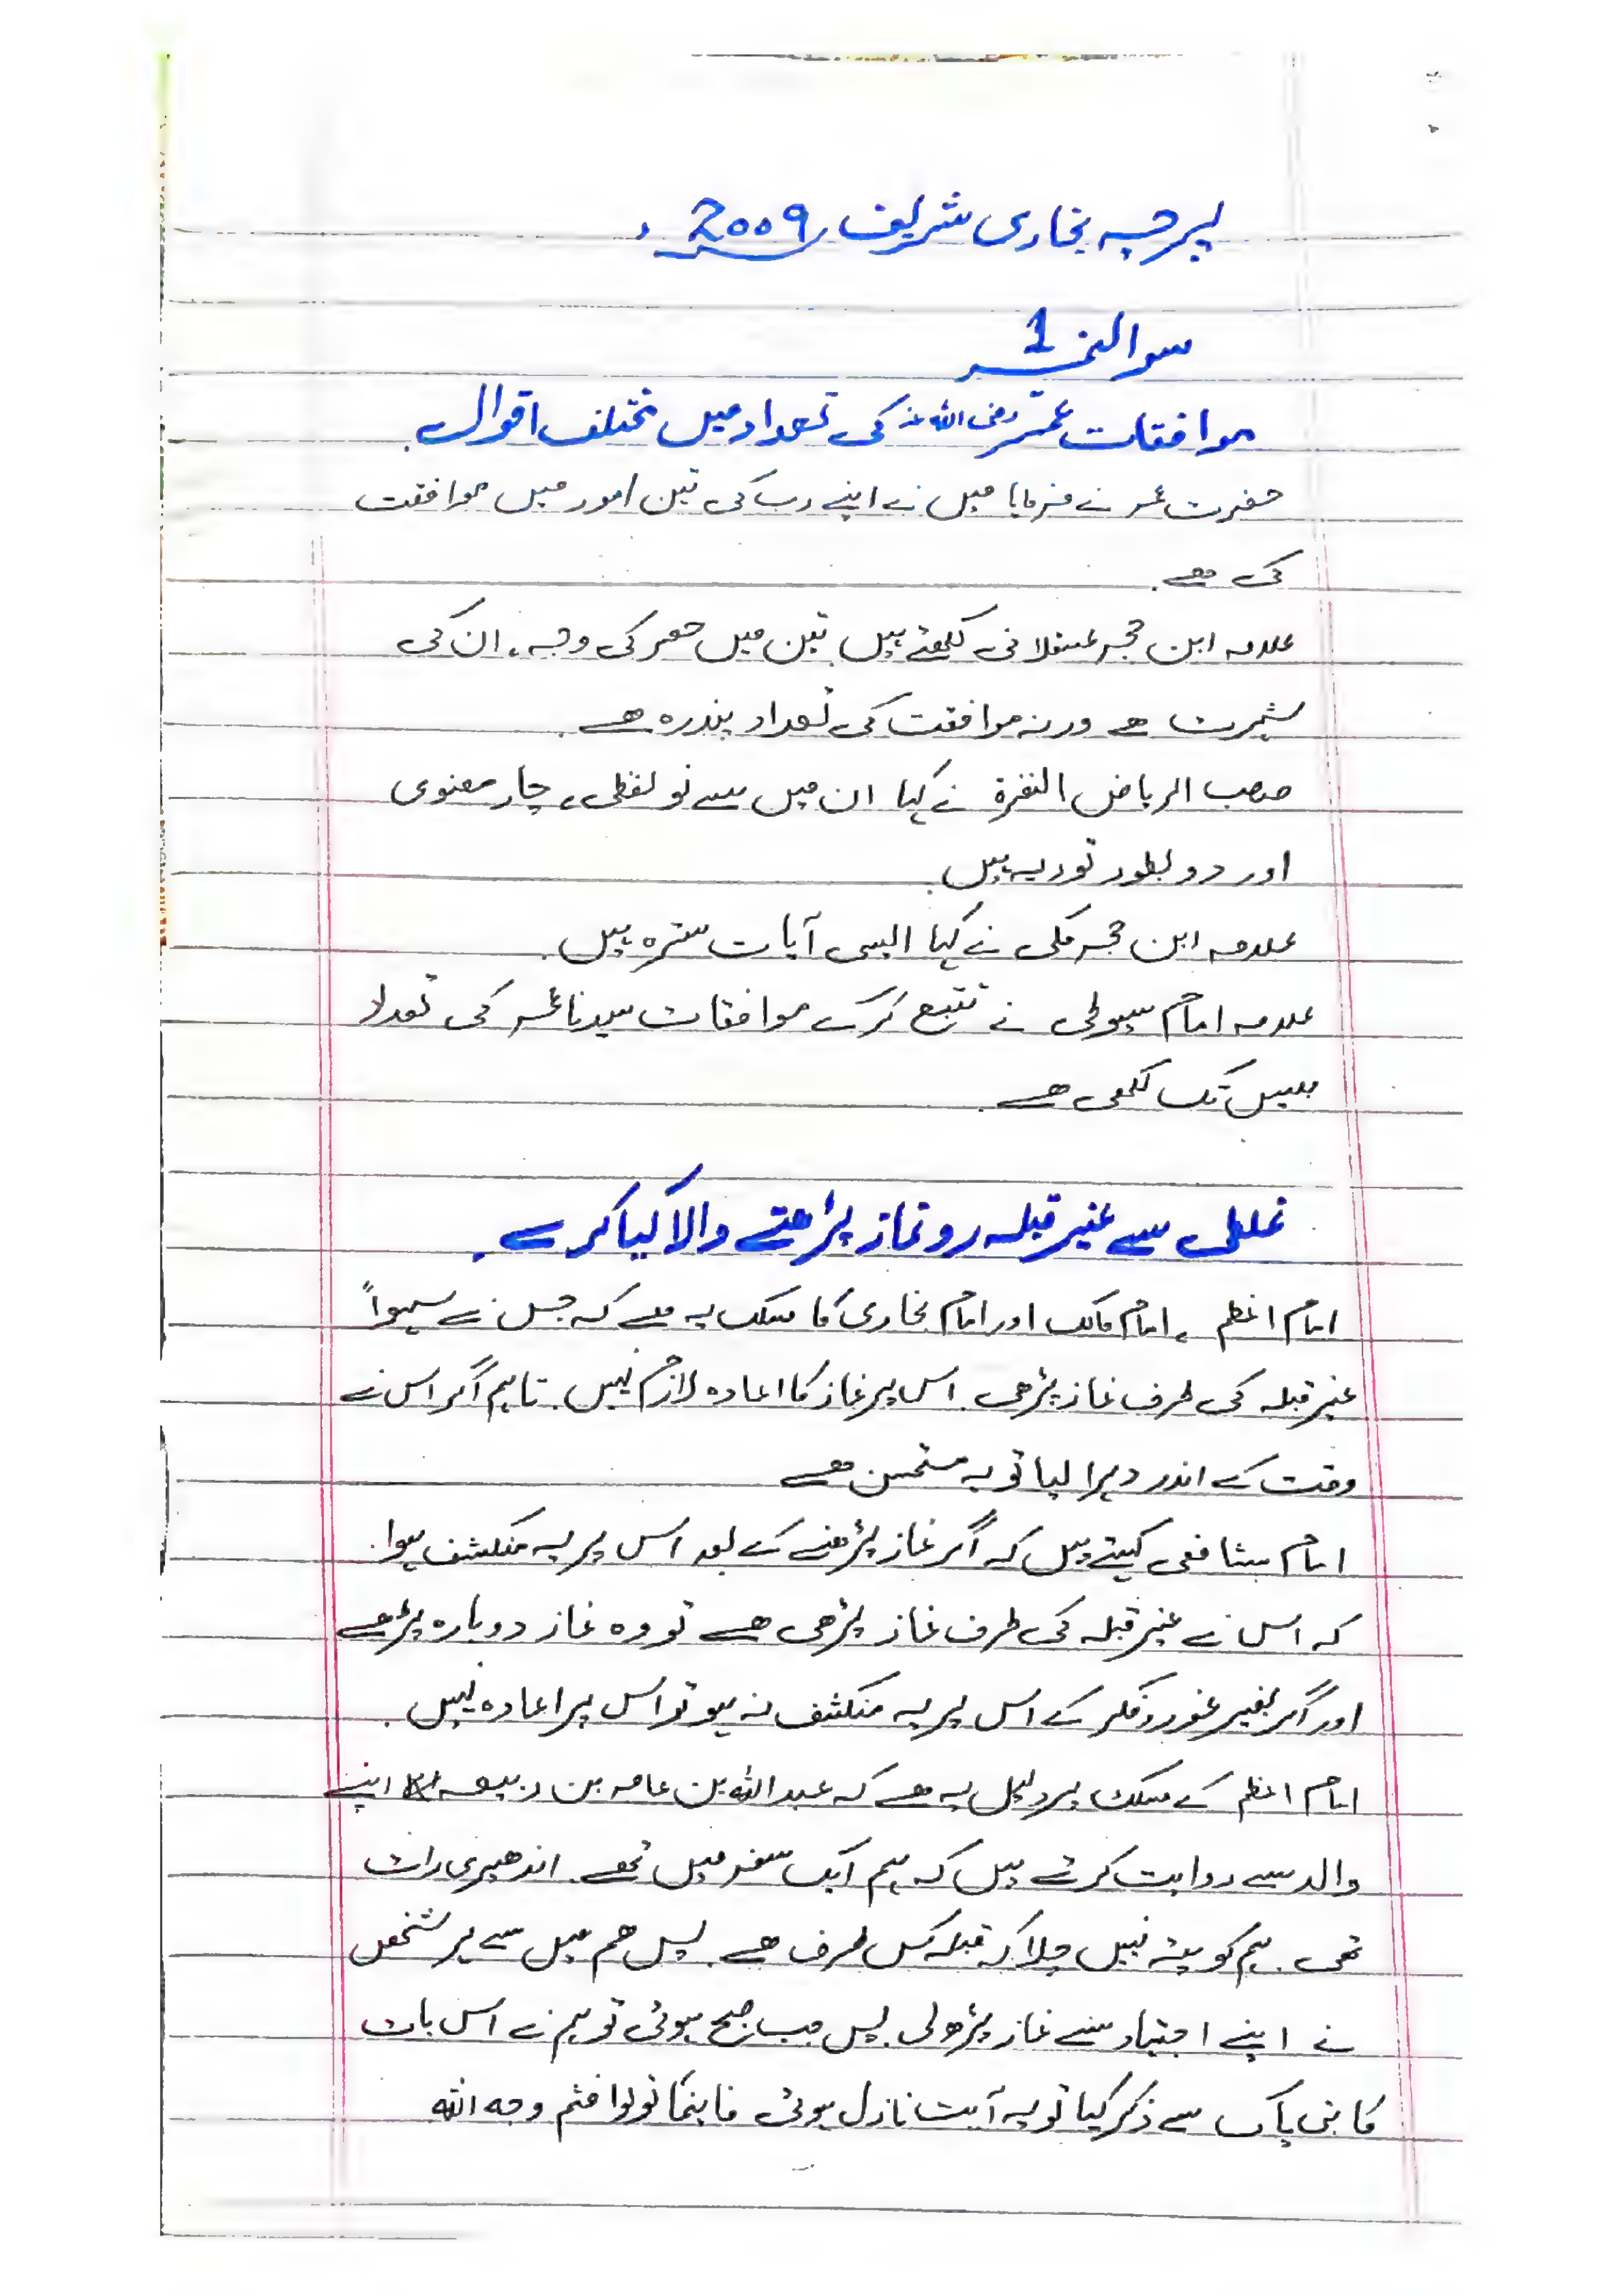 پرچہ بخاری شریف 2009ء
سوالنمبر 1
موافقات عمر رضی اللہ عنہ کی تعداد میں مختلف اقوال.
حضرت عمر نے فرمایا میں نے اپنے رب کی تین امور میں موافقت
کی ہے.
علامہ ابن حجر عسقلانی لکھتے ہیں تین میں حصر کی وجہ، ان کی
شہرت ہے ورنہ موافقت کی تعداد پندرہ ہے.
صاحب الریاض النضرۃ نے کہا ان میں سے نو لفظی، چار معنوی
اور دو بطور توریہ ہیں.
علامہ ابن حجر مکی نے کہا ایسی آیات سترہ ہیں.
علامہ امام سیوطی نے تتبع کرکے موافقات سیدنا عمر کی تعداد
بیس تک لکھی ہے.
غلطی سے غیر قبلہ رو نماز پڑھنے والا کیا کرے.
امام اعظم، امام مالک اور امام بخاری کا مسلک یہ ہے کہ جس نے سہواً
غیر قبلہ کی طرف نماز پڑھی اس پر نماز کا اعادہ لازم نہیں. تاہم اگر اس نے
وقت کے اندر دہرا لیا تو یہ مستحسن ہے
امام شافعی کہتے ہیں کہ اگر نماز پڑھنے کے بعد اس پر یہ منکشف ہوا.
کہ اس نے غیر قبلہ کی طرف نماز پڑھی ہے تو وہ نماز دوبارہ پڑھے
اور اگر بغیر غور و فکر کے اس پر یہ منکشف نہ ہو تو اس پر اعادہ نہیں.
امام اعظم کے مسلک پر دلیل یہ ہے کہ عبداللہ بن عامہ بن ربیعہ اپنے
والد سے روایت کرتے ہیں کہ ہم ایک سفر میں تھے. اندھیری رات
تھی. ہم کو پتہ نہیں چلا کہ قبلہ کس طرف ہے. پس ھم میں سے ہر شخص
نے اپنے اجتہاد سے نماز پڑھ لی. پس جب صبح ہوئی تو ہم نے اس بات
کا نبی پاک سے ذکر کیا تو یہ آیت نازل ہوئی فاینما تولوا فثم وجہ اللہ